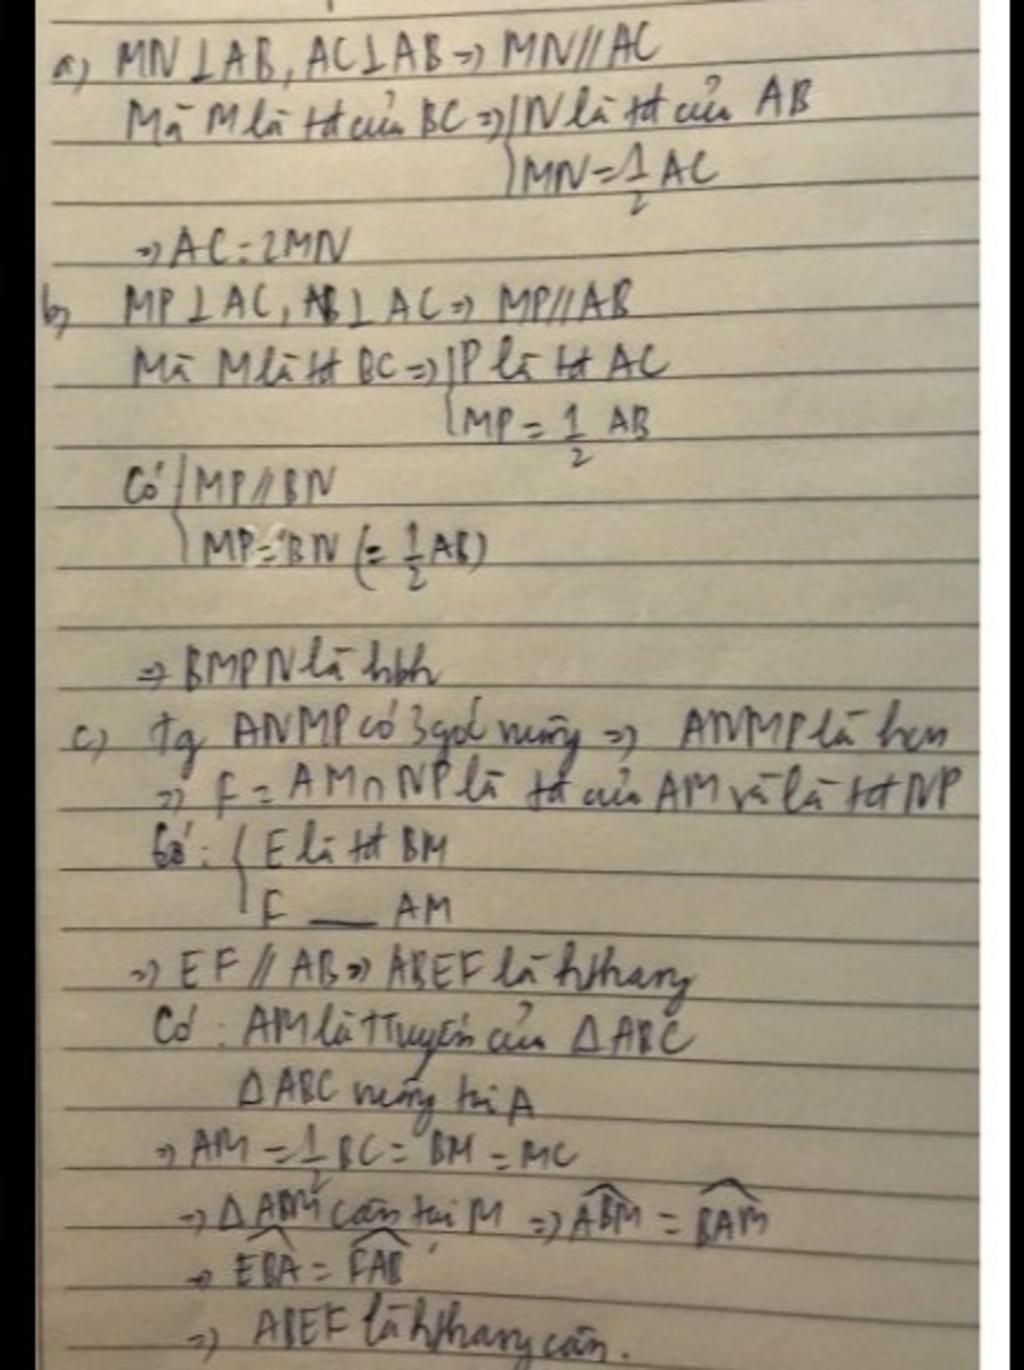 a) MN⊥AB, AC⊥AB => MN//AC
Mà M là tđ của BC => { N là tđ của AB
{ MN = 1/2 AC
=> AC = 2MN
b) MP⊥AC, AB⊥AC => MP//AB
Mà M là tđ BC => { P là tđ AC
{ MP = 1/2 AB
Có { MP//BN
{ MP = BN (= 1/2 AB)
=> BMPN là hbh
c) Tg ANMP có 3 góc vuông => ANMP là hcn
=> F = AM∩NP là tđ của AM và là tđ NP
Có: { E là tđ BM
{ F __ AM
=> EF // AB => ABEF là hthang
Có: AM là TTuyến của ΔABC
ΔABC vuông tại A
=> AM = 1/2 BC = BM = MC
=> ΔABM cân tại M => ABM̂ = BAM̂
=> EBÂ = FAB̂
=> ABEF là hthang cân.